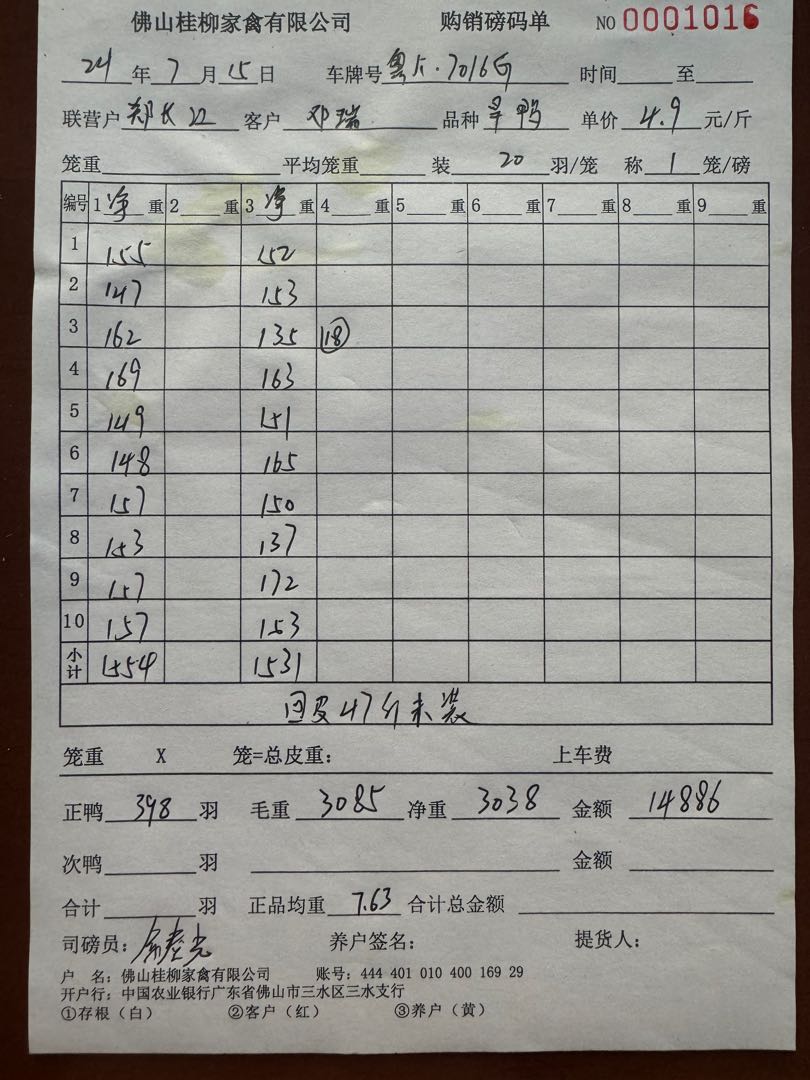 佛山桂柳家禽有限公司 购销磅码单 NO 0001016
24 年 7 月 15 日 车牌号 粤A·7016G 时间 至
联营户 郑长江 客户 邓瑞 品种 旱鸭 单价 4.9 元/斤
笼重 平均笼重 装 20 羽/笼 称 1 笼/磅
编号 1 净 重 2 重 3 净 重 4 重 5 重 6 重 7 重 8 重 9 重
1 155 152
2 147 153
3 162 135 18
4 169 163
5 149 151
6 148 165
7 157 150
8 153 137
9 157 172
10 157 153
小计 1554 1531
回皮47斤未装
笼重 X 笼=总皮重: 上车费
正鸭 398 羽 毛重 3085 净重 3038 金额 14886
次鸭 羽 金额
合计 羽 正品均重 7.63 合计总金额
司磅员: 养户签名: 提货人:
户 名: 佛山桂柳家禽有限公司 账号: 444 401 010 400 169 29
开户行: 中国农业银行广东省佛山市三水区三水支行
①存根（白） ②客户（红） ③养户（黄）